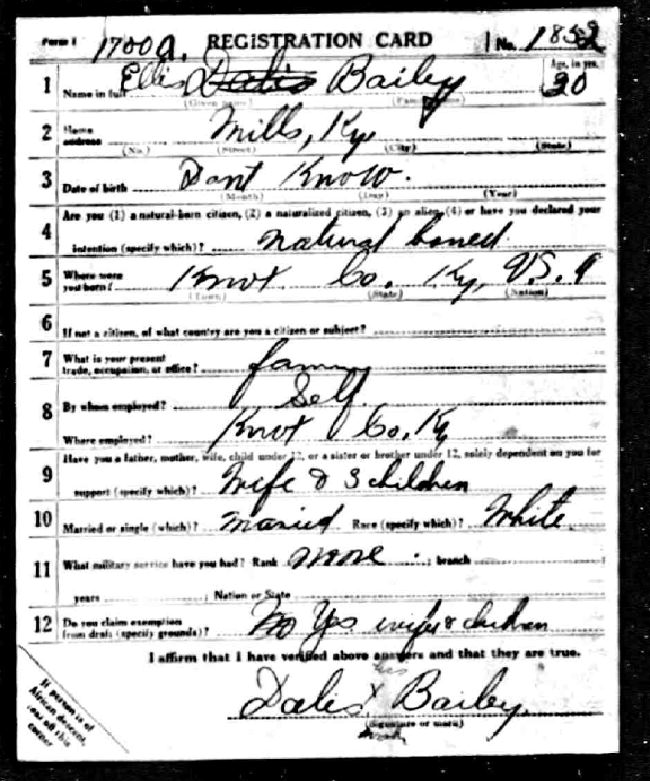 Form 1 1700 a. REGISTRATION CARD No. 1852
Age, in yrs.
1 Name in full Ellis Dalis Baily 30
(Given name) (Family name)
2 Home address Mills, Ky
(No.) (Street) (City) (State)
3 Date of birth Dont Know.
(Month) (Day) (Year)
Are you (1) a natural-born citizen, (2) a naturalized citizen, (3) an alien, (4) or have you declared your
4 intention (specify which)? natural boned.
5 Where were you born? Knot Co. Ky, U.S. a
(Town) (State) (Nation)
6 If not a citizen, of what country are you a citizen or subject?
7 What is your present trade, occupation, or office?
8 By whom employed? Self.
Where employed? Knot Co. Ky
Have you a father, mother, wife, child under 12, or a sister or brother under 12, solely dependent on you for
9 support (specify which)? Wife & 3 children
10 Married or single (which)? Maried Race (specify which)? White.
11 What military service have you had? Rank none. ; branch
years ; Nation or State
12 Do you claim exemption from draft (specify grounds)? No Yes wife & children
I affirm that I have verified above answers and that they are true.
his
Dalis x Bailey
(Signature or mark)
mark
If person is of
African descent,
this
corner